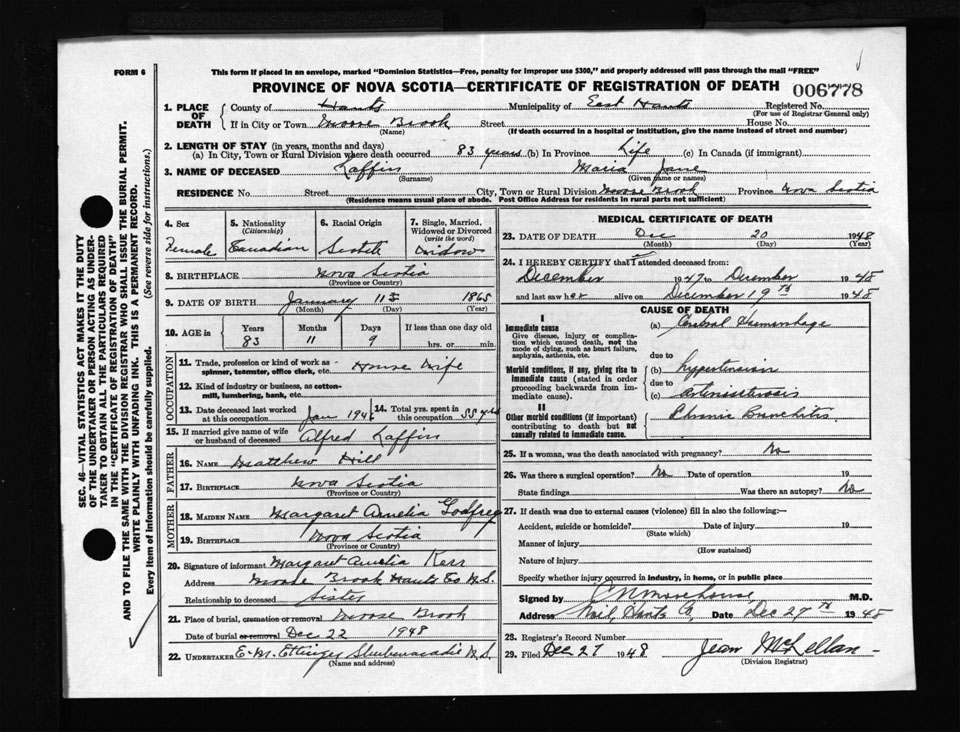 FORM 6
This form if placed in an envelope, marked "Dominion Statistics—Free, penalty for improper use $300," and properly addressed will pass through the mail "FREE"
PROVINCE OF NOVA SCOTIA—CERTIFICATE OF REGISTRATION OF DEATH
006778
1. PLACE OF DEATH
County of Hants Municipality of East Hants Registered No.
(For use of Registrar General only)
If in City or Town Moose Brook Street House No.
(Name) (If death occurred in a hospital or institution, give the name instead of street and number)
2. LENGTH OF STAY (in years, months and days)
(a) In City, Town or Rural Division where death occurred 83 years (b) In Province Life (c) In Canada (if immigrant)
3. NAME OF DECEASED Laffin Maria Jane
(Surname) (Given name or names)
RESIDENCE No. Street City, Town or Rural Division Moose Brook Province Nova Scotia
(Residence means usual place of abode. Post Office Address for residents in rural parts not sufficient)
4. Sex
Female
5. Nationality
(Citizenship)
Canadian
6. Racial Origin
Scotch
7. Single, Married, Widowed or Divorced
(write the word)
Widow
8. BIRTHPLACE Nova Scotia
(Province or Country)
9. DATE OF BIRTH January 11 1865
(Month) (Day) (Year)
10. AGE in Years Months Days If less than one day old
83 11 9 hrs. or min.
OCCUPATION
11. Trade, profession or kind of work as spinner, teamster, office clerk, etc. House Wife
12. Kind of industry or business, as cotton-mill, lumbering, bank, etc.
13. Date deceased last worked at this occupation Jan 1946
14. Total yrs. spent in this occupation 55 yrs
15. If married give name of wife or husband of deceased Alfred Laffin
FATHER
16. NAME Matthew Hill
17. BIRTHPLACE Nova Scotia
(Province or Country)
MOTHER
18. MAIDEN NAME Margaret Amelia Godfrey
19. BIRTHPLACE Nova Scotia
(Province or Country)
20. Signature of informant Margaret Amelia Kerr
Address Moose Brook Hants Co N.S.
Relationship to deceased Sister
21. Place of burial, cremation or removal Moose Brook
Date of burial or removal Dec 22 1948
22. UNDERTAKER E. M. Ettinger Shubenacadie N.S.
(Name and address)
MEDICAL CERTIFICATE OF DEATH
23. DATE OF DEATH Dec 20 1948
(Month) (Day) (Year)
24. I HEREBY CERTIFY that I attended deceased from:
December 1947 to December 1948
and last saw her alive on December 19th 1948
CAUSE OF DEATH
I
Immediate cause
Give disease, injury or complication which caused death, not the mode of dying, such as heart failure, asphyxia, asthenia, etc.
(a) Cerebral Haemorrhage
due to
Morbid conditions, if any, giving rise to immediate cause (stated in order proceeding backwards from immediate cause).
(b) hypertension
due to
(c) arteriosclerosis
II
Other morbid conditions (if important) contributing to death but not causally related to immediate cause.
Chronic Bronchitis
25. If a woman, was the death associated with pregnancy? No
26. Was there a surgical operation? No Date of operation 19
State findings Was there an autopsy? No
27. If death was due to external causes (violence) fill in also the following:—
Accident, suicide or homicide? Date of injury 19
(State which)
Manner of injury
(How sustained)
Nature of injury
Specify whether injury occurred in industry, in home, or in public place
Signed by C N Morehouse M.D.
Address Noel, Hants Co, Date Dec 27th 1948
28. Registrar's Record Number
29. Filed Dec 27 1948 Jean McLellan
(Division Registrar)
SEC. 46—VITAL STATISTICS ACT MAKES IT THE DUTY
OF THE UNDERTAKER OR PERSON ACTING AS UNDER-
TAKER TO OBTAIN ALL THE PARTICULARS REQUIRED
IN THE "CERTIFICATE OF REGISTRATION OF DEATH"
AND TO FILE THE SAME WITH THE DIVISION REGISTRAR WHO SHALL ISSUE THE BURIAL PERMIT.
WRITE PLAINLY WITH UNFADING INK. THIS IS A PERMANENT RECORD.
Every item of information should be carefully supplied. (See reverse side for instructions.)